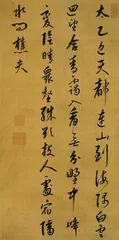 太乙近天都連山到海隅白雲
迴望合青靄入看無分野中峰
變陰晴衆壑殊欲投人處宿隔
水問樵夫